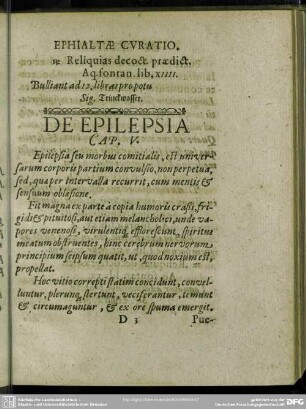 EPHIALTÆ CVRATIO.
℞ Reliquias decoct. prædict.
Aq. fontan. lib. xiiii.
Bulliant ad 12. libras pro potu
Sig. Trinckwasser.
DE EPILEPSIA
CAP. V.
Epilepsia seu morbus comitialis, est univer-
sarum corporis partium convulsio, non perpetua,
sed, qua per Intervalla recurrit, cum mentis &
sensuum oblæsione.
Fit magna ex parte à copia humoris crassi, fri-
gidi & pituitosi, aut etiam melancholici, unde va-
pores venenosi, virulentiq; efflorescunt, spiritus
meatum obstruentes, hinc cerebrum nervorum
principium seipsum quatit, ut, quod noxium est,
propellat.
Hoc vitio correpti statim concidunt, convel-
luntur, plerunq; stertunt, vociferantur, tremunt
& circumaguntur, & ex ore spuma emergit.
D 3 Pue-